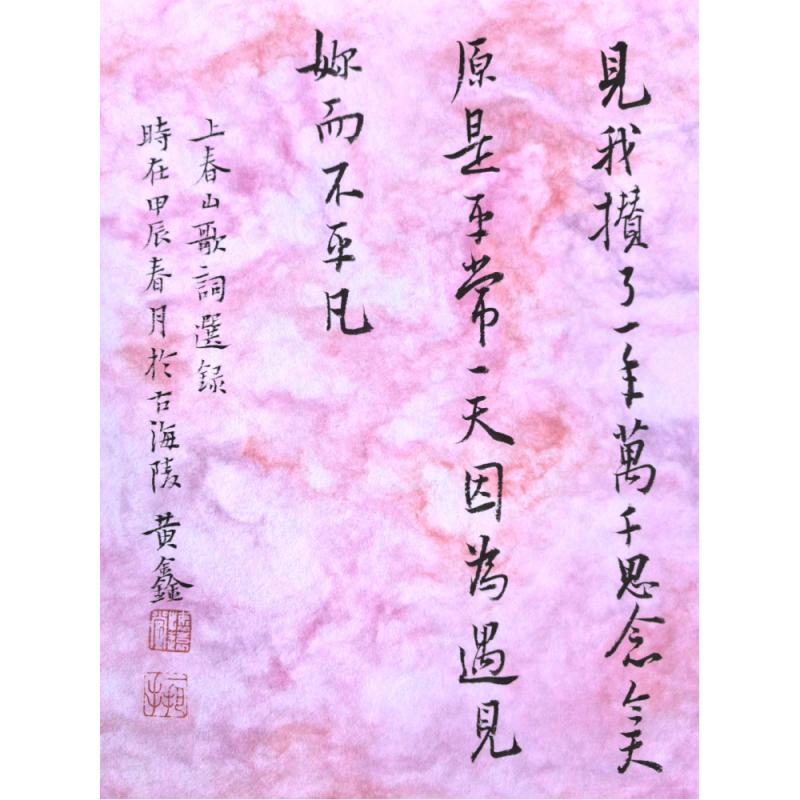 見我攢了一年萬千思念今天
原是平常一天因為遇見
妳而不平凡
上春山歌詞選録
時在甲辰春月於古海陵 黄鑫